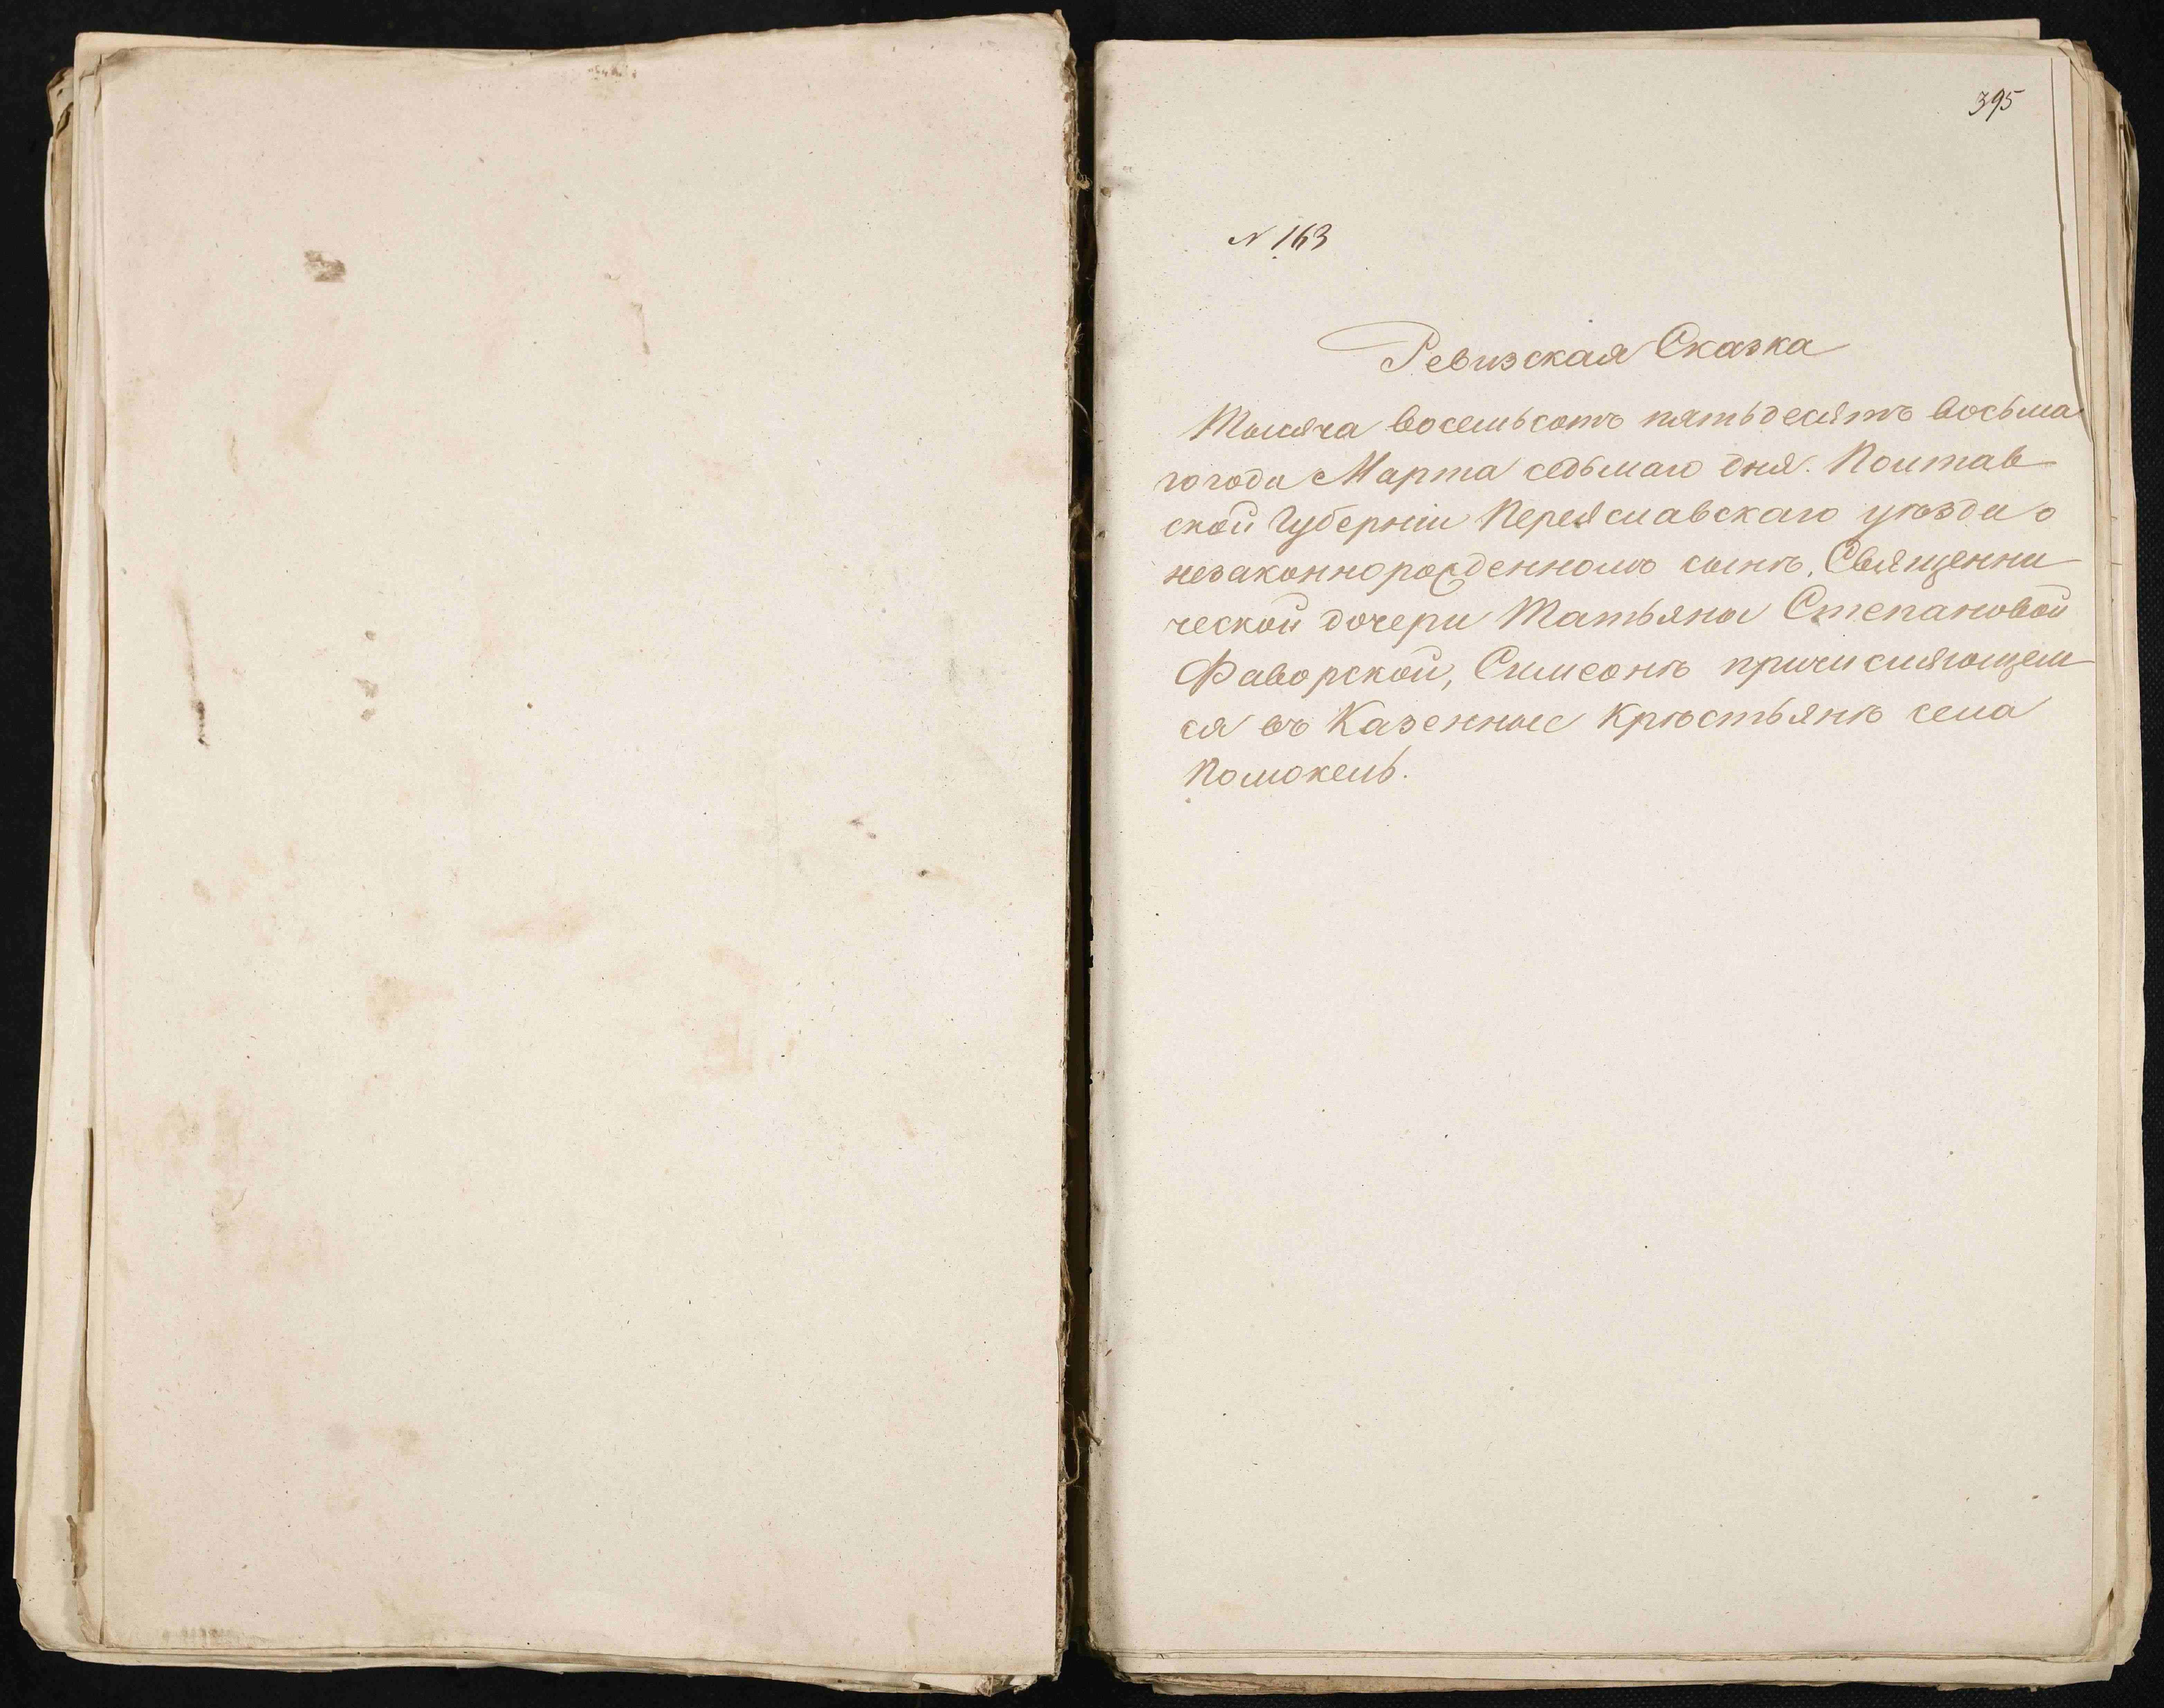 395
N 163
Ревизская Сказка
Тысяча восемьсотъ пятьдесятъ восьма
го года Марта седьмаго дня. Полтав
ской Губерніи Переяславскаго уѣзда о
незаконнорожденномъ сынѣ, Священни
ческой дочери Татьяны Степановой
Фаворской, Симеонѣ причисляющем
ся въ Казенные Крѣстьянѣ села
Помоклы.